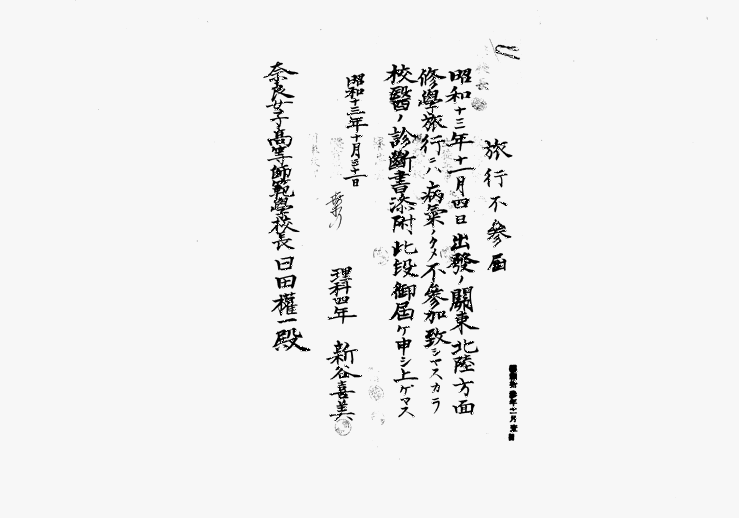 旅行不參届
昭和十三年十一月四日出發ノ關東北陸方面
修學旅行ニハ病氣ノタメ不參加致シマスカラ
校醫ノ診斷書添附此段御届ケ申シ上ゲマス
昭和十三年十月三十一日
理科四年 新谷喜美
奈良女子高等師範學校長 臼田權一殿